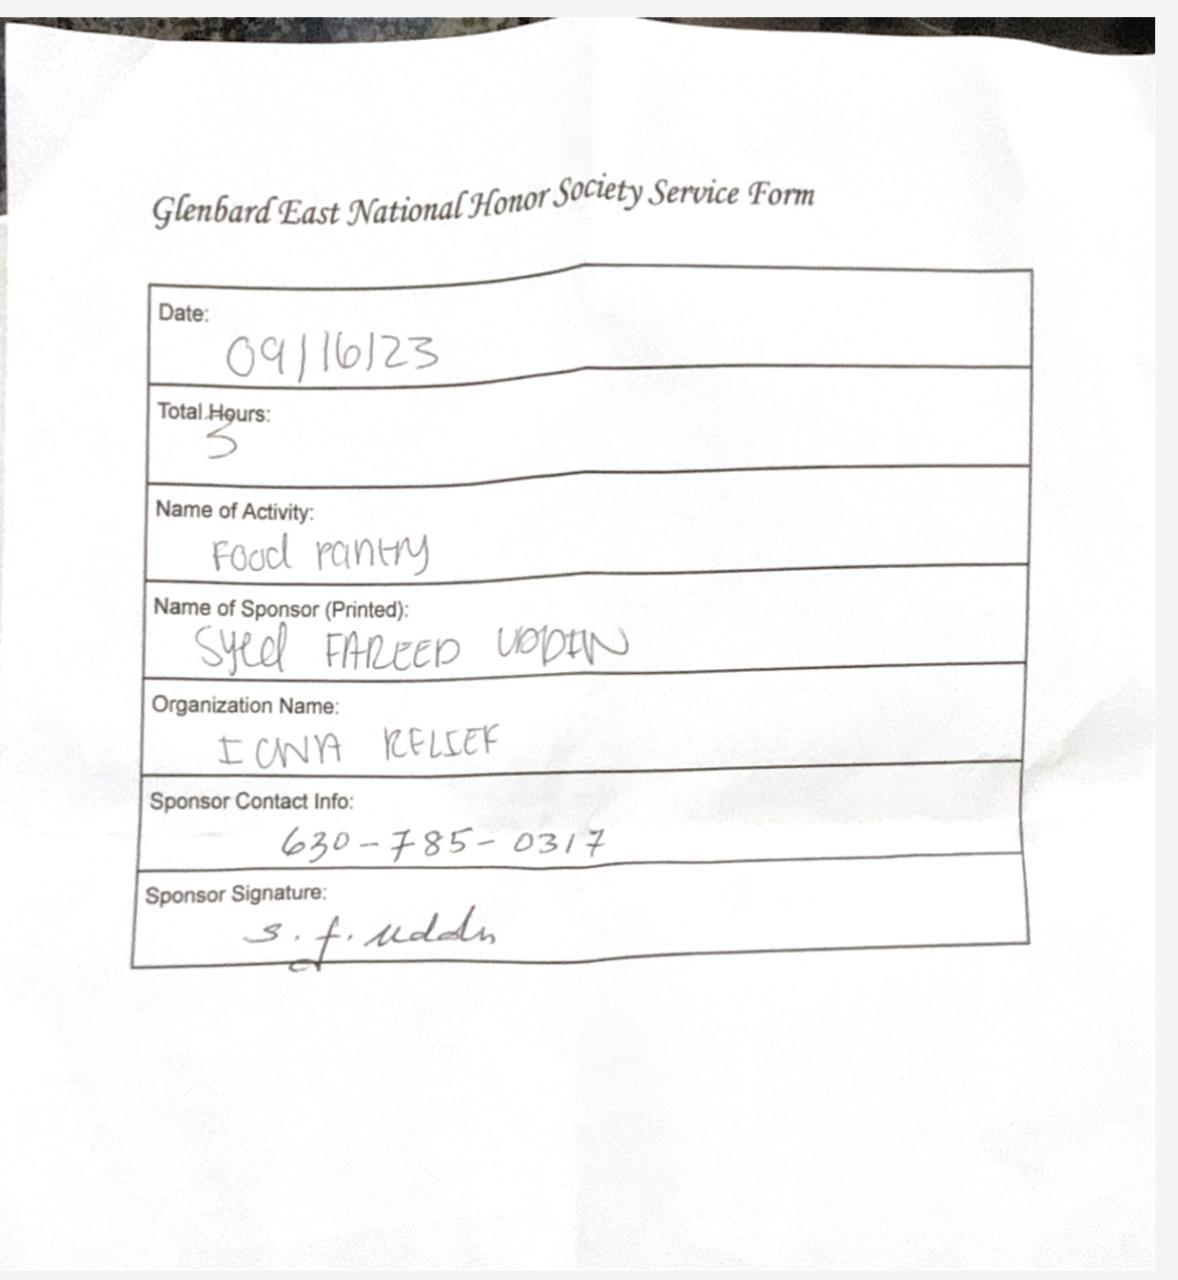 Glenbard East National Honor Society Service Form
Date:
09/16/23
Total Hours:
3
Name of Activity:
Food pantry
Name of Sponsor (Printed):
Syed FAREED UDDIN
Organization Name:
ICNA RELIEF
Sponsor Contact Info:
630-785-0317
Sponsor Signature:
s. f. uddin